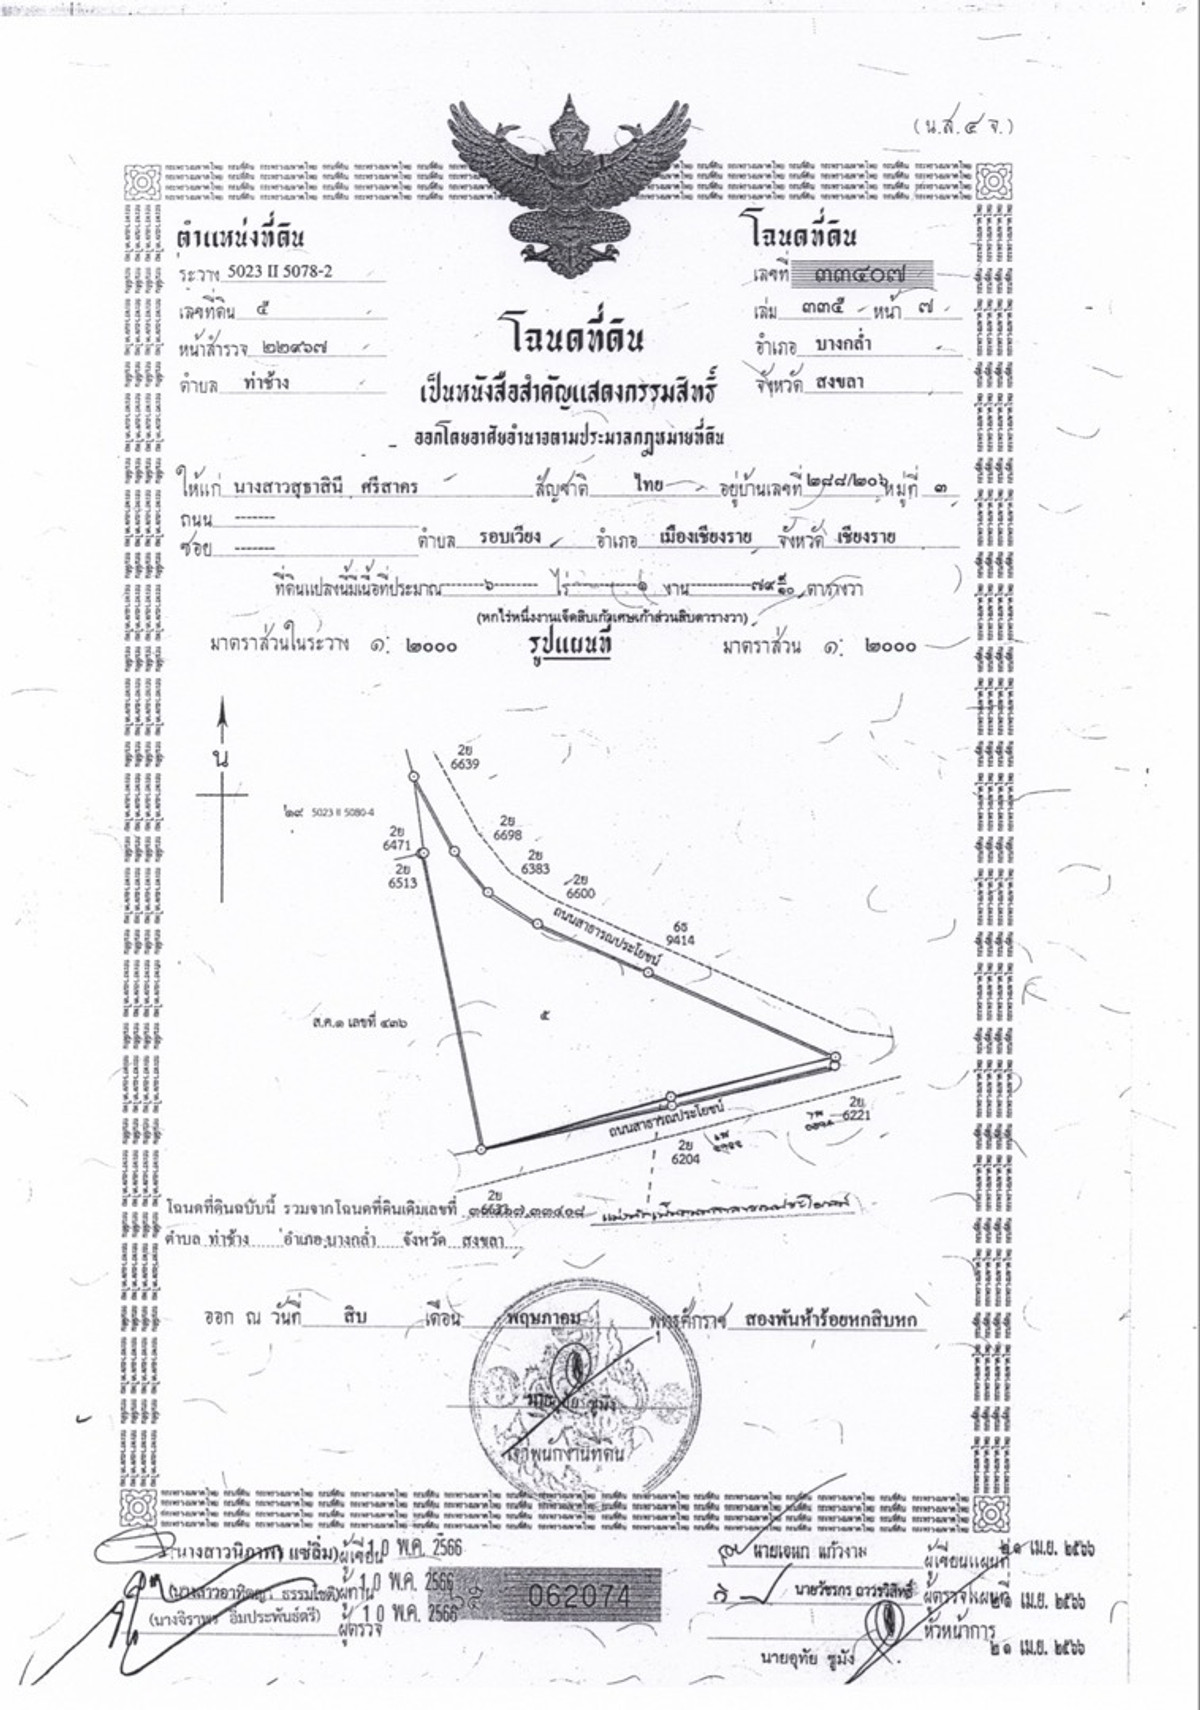 (น.ส.๔ จ.)
ตำแหน่งที่ดิน
ระวาง 5023 II 5078-2
เลขที่ดิน ๕
หน้าสำรวจ ๒๒๙๖๗
ตำบล ท่าช้าง
โฉนดที่ดิน
เลขที่ ๓๓๔๐๗
เล่ม ๓๓๕ หน้า ๗
อำเภอ บางกล่ำ
จังหวัด สงขลา
โฉนดที่ดิน
เป็นหนังสือสำคัญแสดงกรรมสิทธิ์
ออกโดยอาศัยอำนาจตามประมวลกฎหมายที่ดิน
ให้แก่ นางสาวสุธาสินี ศรีสาคร สัญชาติ ไทย อยู่บ้านเลขที่ ๒๘๘/๒๐๖ หมู่ที่ ๓
ถนน -------
ซอย ------- ตำบล รอบเวียง อำเภอ เมืองเชียงราย จังหวัด เชียงราย
ที่ดินแปลงนี้มีเนื้อที่ประมาณ ๖ ไร่ ๑ งาน ๗๙ ๙/๑๐ ตารางวา
(หกไร่หนึ่งงานเจ็ดสิบเก้าเศษเก้าส่วนสิบตารางวา)
มาตราส่วนในระวาง ๑: ๒๐๐๐ รูปแผนที่ มาตราส่วน ๑: ๒๐๐๐
น
2ย
6639
๒๙ 5023 II 5080-4
2ย
6698
2ย
6471
2ย
6383
2ย
6513
2ย
6600
ถนนสาธารณประโยชน์
6ธ
9414
ส.ค.๑ เลขที่ ๔๓๖
๕
ถนนสาธารณประโยชน์
2ย
6221
2ย
6204
2ย
โฉนดที่ดินฉบับนี้ รวมจากโฉนดที่ดินเดิมเลขที่
ตำบล ท่าช้าง อำเภอ บางกล่ำ จังหวัด สงขลา
ออก ณ วันที่ สิบ เดือน พฤษภาคม พุทธศักราช สองพันห้าร้อยหกสิบหก
เจ้าพนักงานที่ดิน
ผู้เขียน 10 พ.ค. 2566
ผู้ทาน 10 พ.ค. 2566
(นางจิราพร อิ่มประพันธ์ตรี) ผู้ตรวจ 10 พ.ค. 2566
062074
นายเอนก แก้วงาม ผู้เขียนแผนที่ ๒๑ เม.ย. ๒๕๖๖
ผู้ตรวจแผนที่ ๒๑ เม.ย. ๒๕๖๖
หัวหน้าการ
นายอุทัย ชูมัง ๒๑ เม.ย. ๒๕๖๖